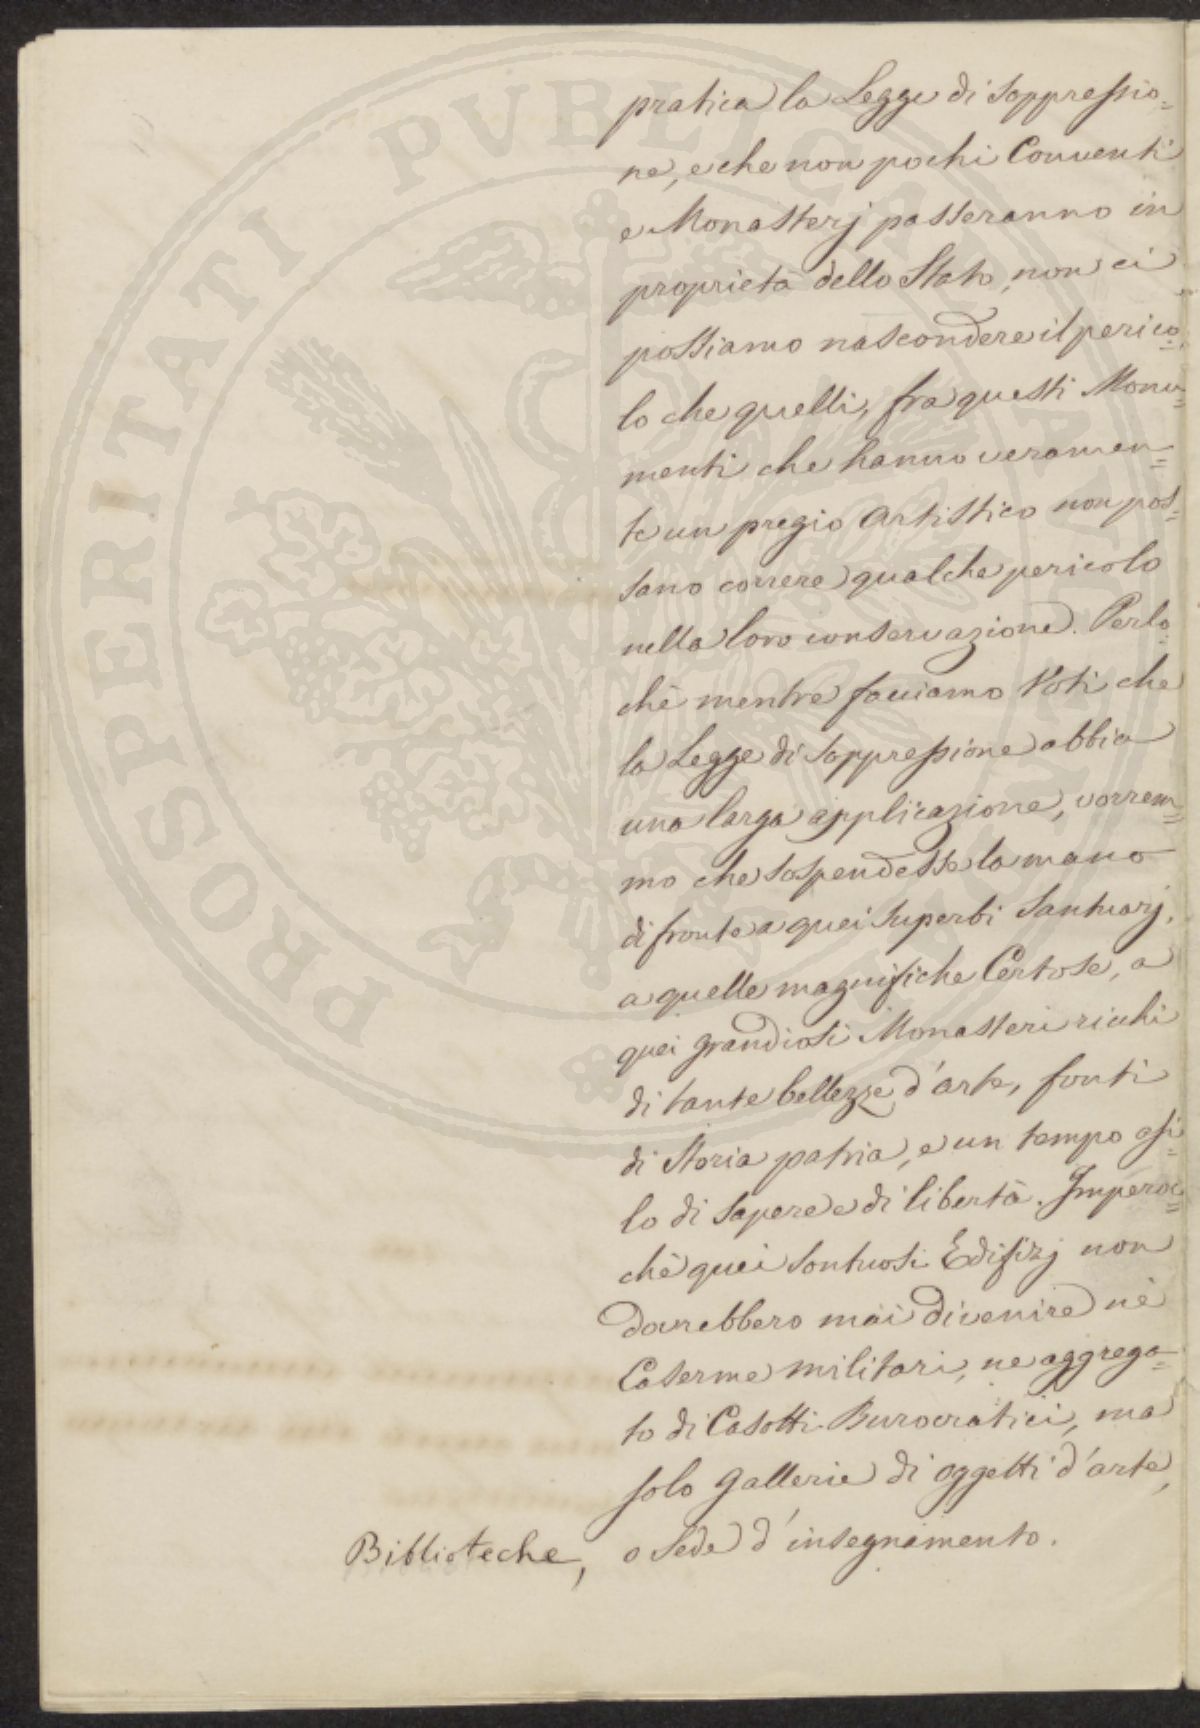 pratica la Legge di soppressio=
ne, e che non pochi Conventi
e Monasterj passeranno in
proprietà dello Stato, non ci
possiamo nascondere il perico=
lo che quelli, fra questi Monu=
menti che hanno veramen=
te un pregio artistico non pos=
sano correre qualche pericolo
nella loro conservazione. Perlo=
chè mentre facciamo Voti che
la Legge di soppressione abbia
una larga applicazione, vorrem=
mo che sospendesse la mano
di fronte a quei superbi Santuarj,
a quelle magnifiche Certose, a
quei grandiosi Monasteri ricchi
di tante bellezze d'arte, fonti
di Storia patria, e un tempo asi=
lo di sapere e di libertà. Imperoc=
chè quei sontuosi Edifizj non
dovrebbero mai divenire nè
Caserme militari, ne aggrega=
to di Casotti Burocratici, ma
solo gallerie di oggetti d'arte,
Biblioteche, o sede d'insegnamento.
PROSPERITATI PVBLICAE